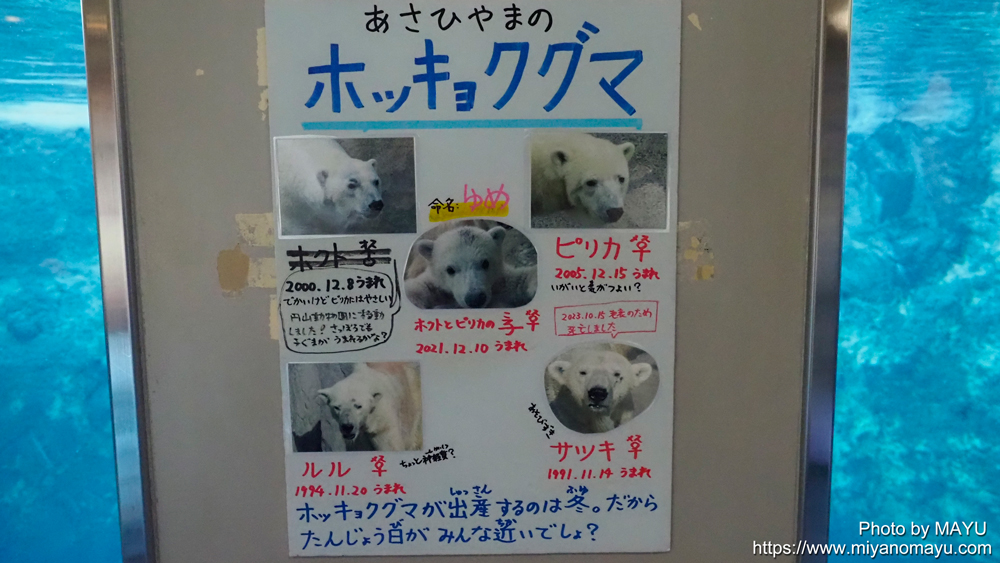 あさひやまの
ホッキョクグマ
命名:ゆめ
ホクト
2000.12.8うまれ
でかいけどピリカにはやさしい
円山動物園に移動
しました!さっぽろでも
子ぐまが うまれるかな?
ピリカ
2005.12.15うまれ
いがいと気がつよい?
ホクトとピリカの子
2021.12.10 うまれ
2023.10.15 老衰のため
死亡しました
ルル
ちょっと神経質?
1994.11.20 うまれ
あそびずき
サツキ
1991.11.14 うまれ
しゅっさん
ふゆ
ホッキョクグマが出産するのは冬。だから
び
ちか
たんじょう日が みんな近いでしょ?
Photo by MAYU
https://www.miyanomayu.com